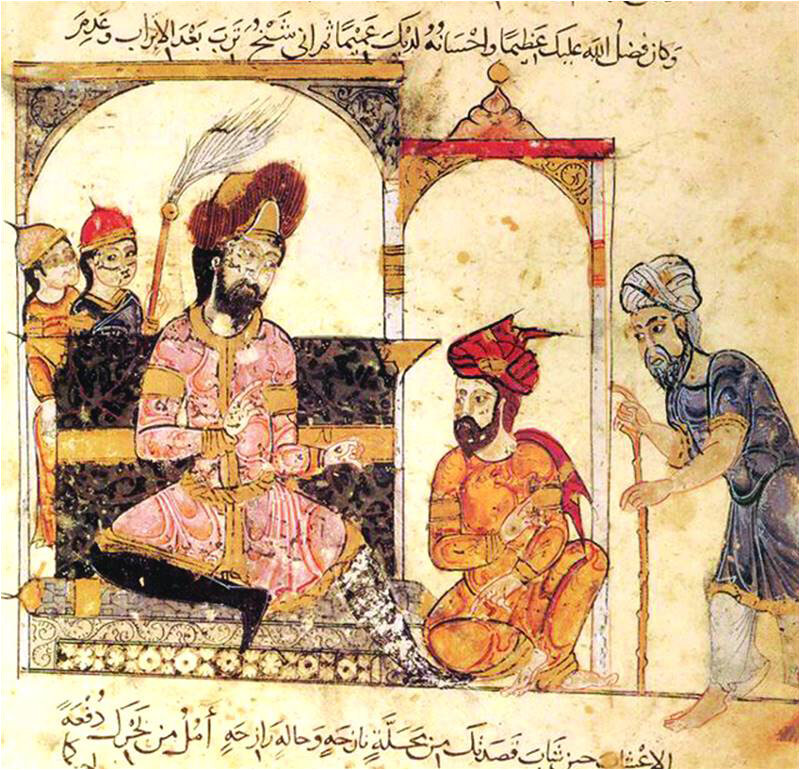 وَكان فضلُ اللهِ عليكَ عَظيمًا واحسَانُهُ لديكَ عَميمًا ثم اني شَيخٌ تَرِبَ بَعدَ الاتراب وعَدِمَ
الاعشاب حين شابَ قصدتك من محلَّةٍ نازحَةٍ وحالةٍ رازحَةٍ أمُلُ من بحرك دُفعَةً